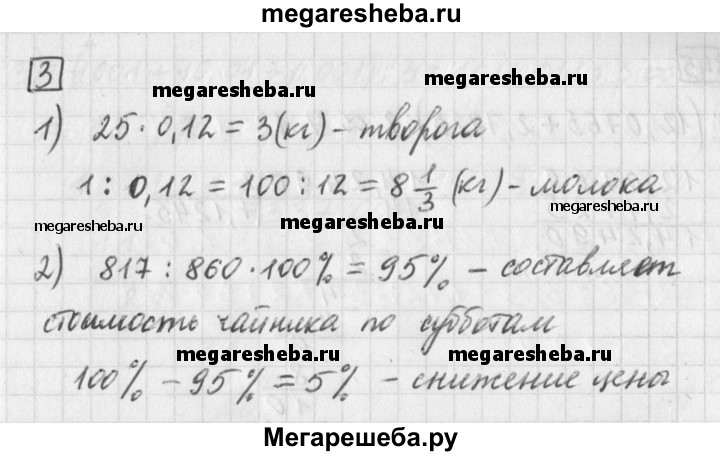 megaresheba.ru
3
megaresheba.ru
1) 25 · 0,12 = 3 (кг) – творога
megaresheba.ru
1 : 0,12 = 100 : 12 = 8 1/3 (кг) – молока
megaresheba.ru
megaresheba.ru
megaresheba.ru
2) 817 : 860 · 100% = 95% – составляет
стоимость чайника по субботам
megaresheba.ru
megaresheba.ru
100% – 95% = 5% – снижение цены
Мегарешеба.ру